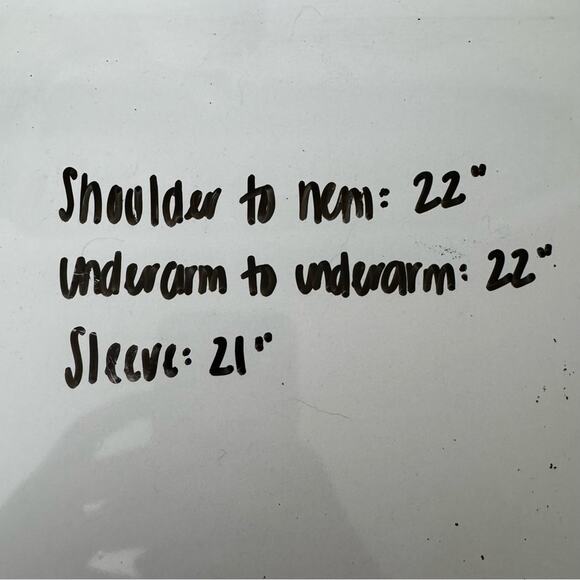 Shoulder to hem: 22"
Underarm to underarm: 22"
Sleeve: 21"